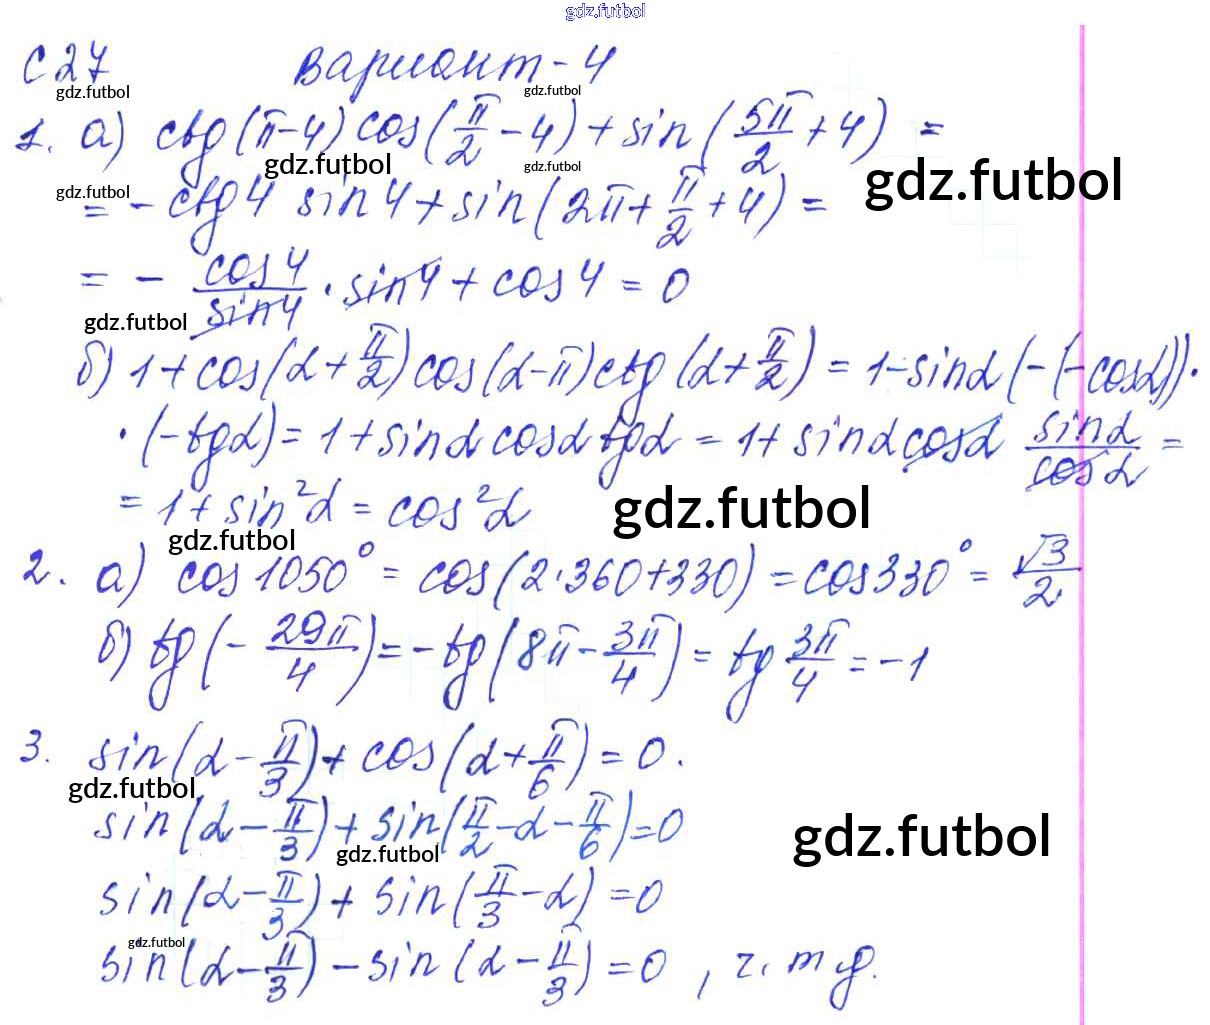 gdz.futbol
С 27 Вариант-4
gdz.futbol gdz.futbol
1. а) ctg(π-4) cos(π/2 - 4) + sin(5π/2 + 4) =
gdz.futbol gdz.futbol gdz.futbol
gdz.futbol
= - ctg4 sin4 + sin(2π + π/2 + 4) =
= - cos4/sin4 · sin4 + cos4 = 0
gdz.futbol
б) 1 + cos(α + π/2) cos(α-π) ctg(α + π/2) = 1 - sinα(-(-cosα)) ·
· (-tgα) = 1 + sinα cosα tgα = 1 + sinα cosα sinα/cosα =
= 1 + sin²α = cos²α
gdz.futbol
gdz.futbol
2. а) cos 1050° = cos(2·360+330) = cos330° = √3/2
б) tg(- 29π/4) = - tg(8π - 3π/4) = tg 3π/4 = -1
3. sin(α - π/3) + cos(α + π/6) = 0.
gdz.futbol
sin(α - π/3) + sin(π/2 - α - π/6) = 0
gdz.futbol gdz.futbol
sin(α - π/3) + sin(π/3 - α) = 0
gdz.futbol
sin(α - π/3) - sin(α - π/3) = 0, ч. т. д.